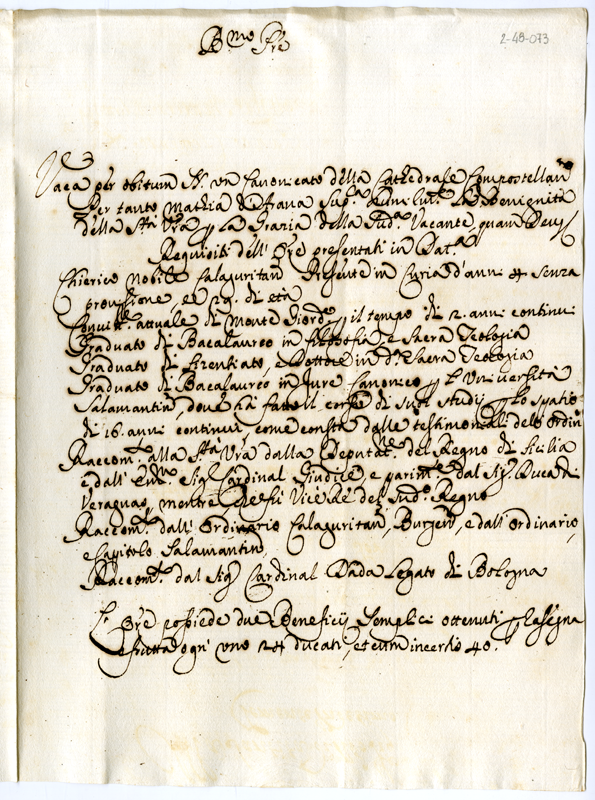 2-48-073
B.mo Pre
Vaca per obitum N. un Canonicato della Cathedrale Compostellan
Per tanto Mathia de Sup.a la Benignità
della S.tà V.ra p la Grazia della Sud.a Vacante, quam Deus
Requisiti dell' Ore presentati in Dat.a
Chierico Nobile Calaguritan Presente in Curia d'anni 4 senza
provisione, et 29 di età
Convitt.e attuale di Monte Giord.o p il tempo di 2. anni continui
Graduato di Bacalaureo in filosofia, e Sacra Teologia
Graduato di Licentiato, e Dottore in d.a Sacra Teologia
Graduato di Bacalaureo in Jure Canonico p l'Università
Salamantin, dove hà fatto il corso di suoi studij p lo spatio
di 16. anni continui, come consta dalle testimoniali delo Ordin
Raccom.to alla S.tà V.ra dalla Deputat.ne del Regno di Sicilia
e dall' Em.o Sig. Cardinal Giudice, e parim.te dal Sig. Duca di
Veraguas, mentre Vice Rè del Sud.o Regno
Raccom.to dall' Ordinario Calaguritan, Burgen, e dall' Ordinario,
e Capitolo Salamantin,
Raccom.to dal Sig Cardinal Dada Legato di Bologna
L' Ore possiede due Beneficij Semplici ottenuti p Rassegna
e frutta ogni uno 24 ducati, et cum incertis 40.